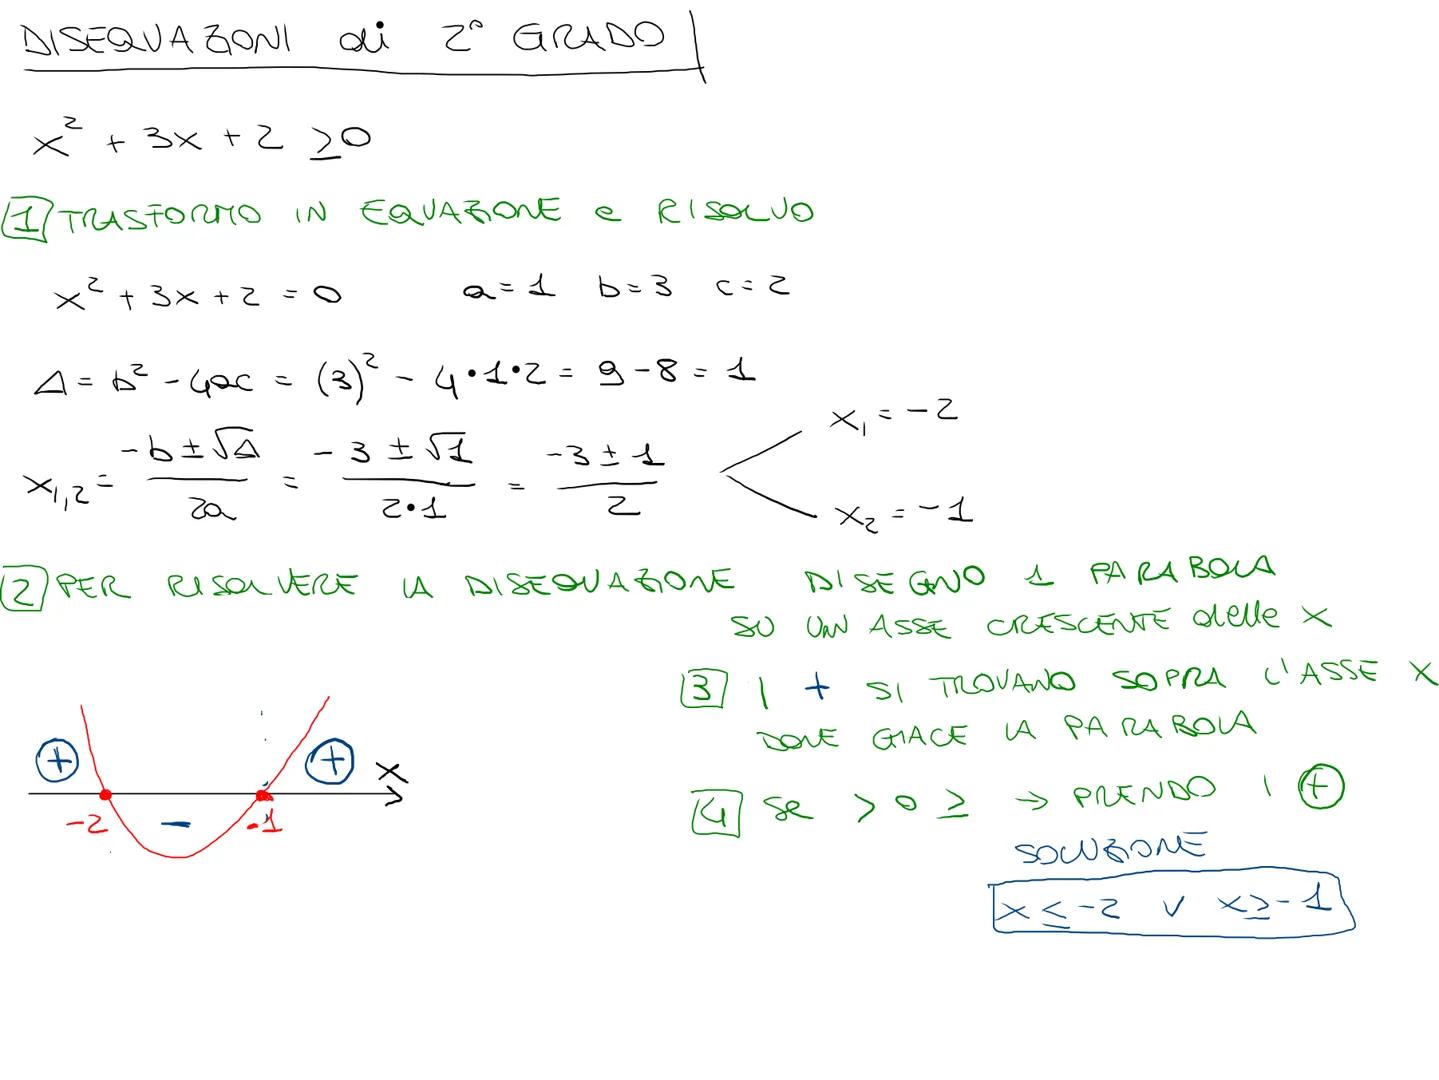 DISEQUAZIONI di 2° GRADO
x² + 3x + 2 ≥ 0
1 TRASFORMO IN EQUAZIONE e RISOLVO
x² + 3x + 2 = 0 a = 1 b = 3 c = 2
Δ = b² - 4ac = (3)² - 4•1•2 = 9 - 8 = 1
x₁,₂ = (-b ± √Δ)/2a = (-3 ± √1)/2•1 = (-3 ± 1)/2
x₁ = -2
x₂ = -1
2 PER RISOLVERE LA DISEQUAZIONE DISEGNO 1 PARABOLA
SU UN ASSE CRESCENTE delle x
3 I + SI TROVANO SOPRA L'ASSE X
DOVE GIACE LA PARABOLA
+ + x
-2 - -1
4 Se > o ≥ → PRENDO I +
SOLUZIONE
x ≤ -2 v x ≥ -1